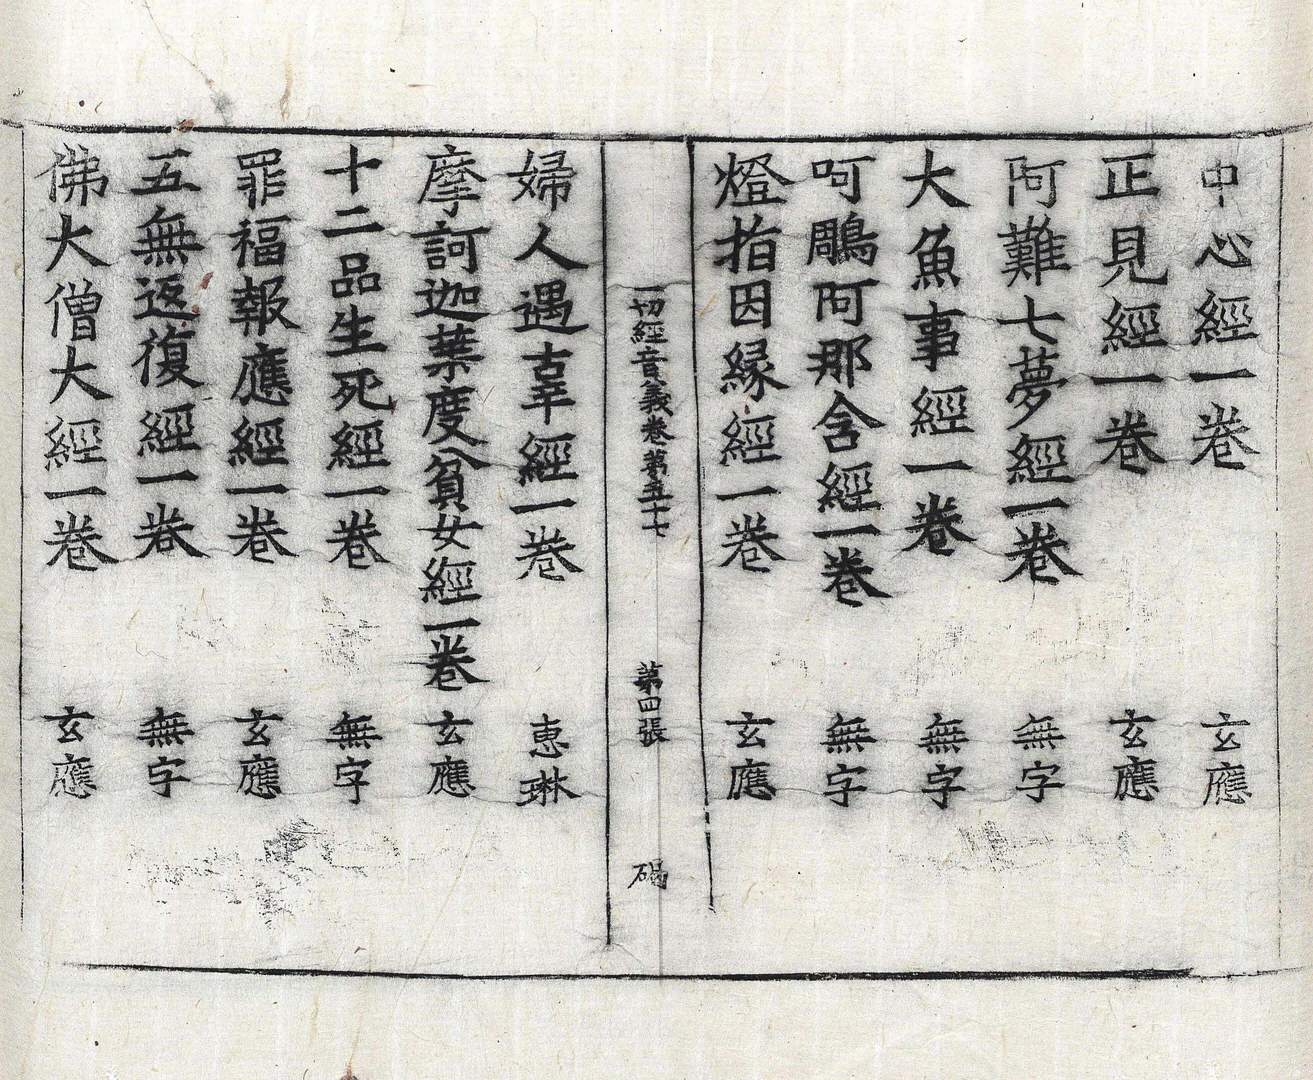 中心經一卷 玄應
正見經一卷 玄應
阿難七夢經一卷 無字
大魚事經一卷 無字
呵鵰阿那含經一卷 無字
燈指因縁經一卷 玄應
一切經音義卷第五十七 第四張 碣
婦人遇辜經一卷 恵琳
摩訶迦葉度貧女經一卷 玄應
十二品生死經一卷 無字
罪福報應經一卷 玄應
五無返復經一卷 無字
佛大僧大經一卷 玄應